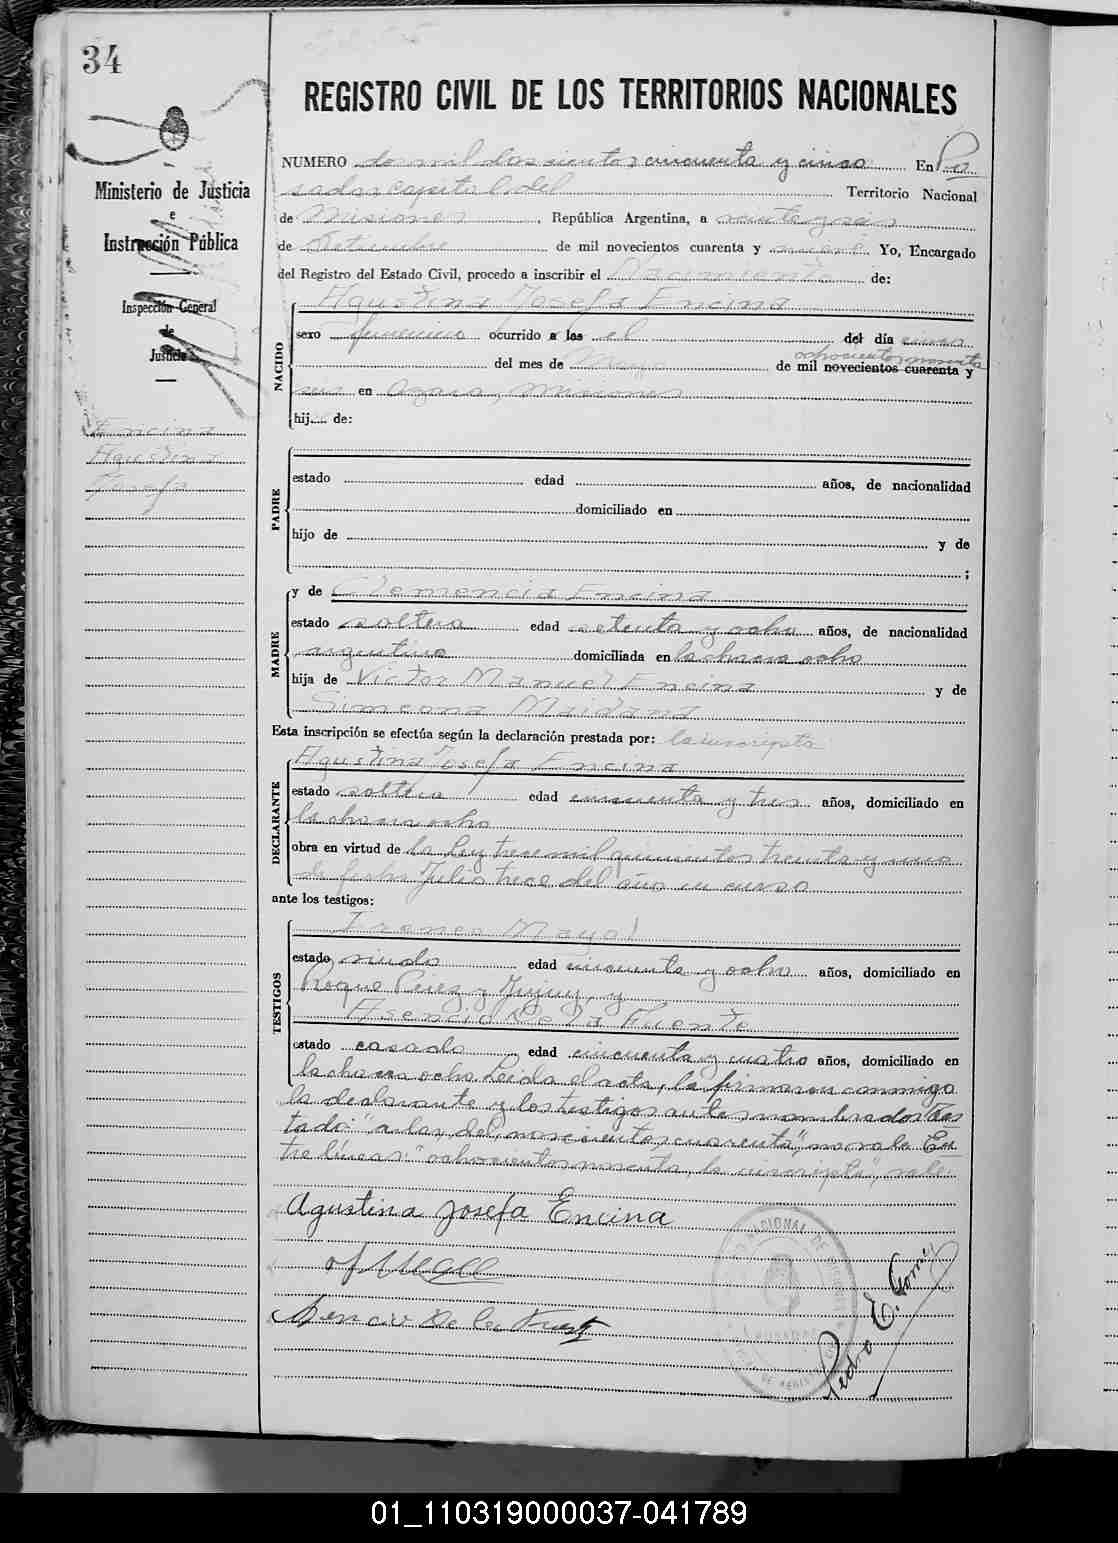 34
REGISTRO CIVIL DE LOS TERRITORIOS NACIONALES
Ministerio de Justicia
e
Instrucción Pública
Inspección General
de
Justicia
Encina
Agustina
Josefa
NUMERO dos mil doscientos cincuenta y cinco En Po
sadas, capital del Territorio Nacional
de Misiones, República Argentina, a veinte y seis
de Setiembre de mil novecientos cuarenta y nueve Yo, Encargado
del Registro del Estado Civil, procedo a inscribir el Nacimiento de:
Agustina Josefa Encina
NACIDO
sexo femenino ocurrido a las el del día cinco
ochocientos noventa
del mes de Mayo de mil novecientos cuarenta y
seis en Azara, Misiones
hij.... de:
PADRE
estado edad años, de nacionalidad
domiciliado en
hijo de y de
;
MADRE
y de Clemencia Encina
estado soltera edad setenta y ocho años, de nacionalidad
argentina domiciliada en la chacra ocho
hija de Victor Manuel Encina y de
Simeona Maidana
Esta inscripción se efectúa según la declaración prestada por: la inscripta
Agustina Josefa Encina
DECLARANTE
estado soltera edad cincuenta y tres años, domiciliado en
la chacra ocho
obra en virtud de la Ley trece mil quinientos treinta y uno
de fecha Julio trece del año en curso
ante los testigos:
TESTIGOS
Ireneo Mayol
estado viudo edad cincuenta y ocho años, domiciliado en
Roque Perez y Jujuy, y
Asencio De la Fuente
estado casado edad cincuenta y cuatro años, domiciliado en
la chacra ocho Leida el acta, la firmaron conmigo
la declarante y los testigos antes nombrados Tes
tado: "a las, del, novecientos cuarenta", no vale. En
tre líneas: "ochocientos noventa, la inscripta", vale.
Agustina Josefa Encina
Asencio De la Fuente
Pedro E. Gomez
01_110319000037-041789